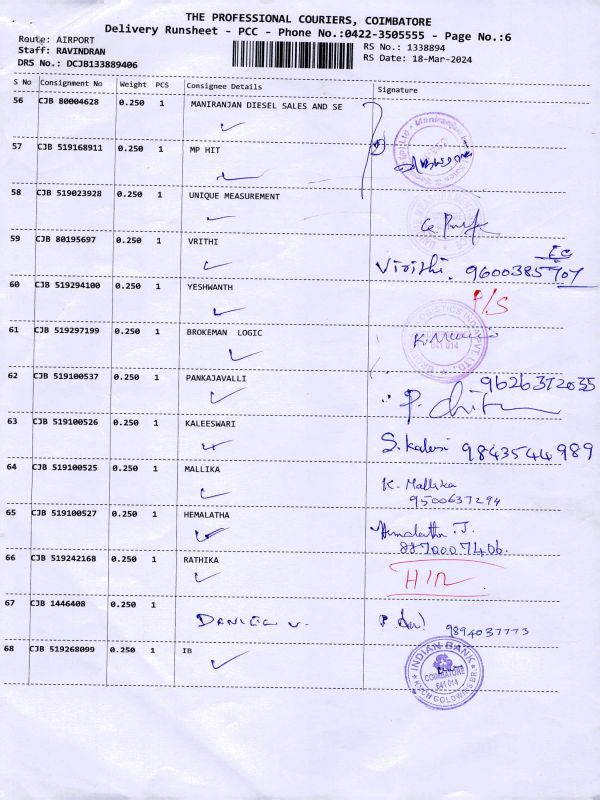 THE PROFESSIONAL COURIERS, COIMBATORE
Delivery Runsheet - PCC - Phone No.:0422-3505555 - Page No.:6
Route: AIRPORT
Staff: RAVINDRAN
DRS No.: DCJB133889406
RS No.: 1338894
RS Date: 18-Mar-2024
S No Consignment No Weight PCS Consignee Details Signature
56 CJB 80004628 0.250 1 MANIRANJAN DIESEL SALES AND SE
57 CJB 519168911 0.250 1 MP HIT
58 CJB 519023928 0.250 1 UNIQUE MEASUREMENT
59 CJB 80195697 0.250 1 VRITHI
Vrithi. 9600385707
60 CJB 519294100 0.250 1 YESHWANTH
P/S
61 CJB 519297199 0.250 1 BROKEMAN LOGIC
641 014
62 CJB 519100537 0.250 1 PANKAJAVALLI
9626372035
63 CJB 519100526 0.250 1 KALEESWARI
S. Kalesi 9843544989
64 CJB 519100525 0.250 1 MALLIKA
K. Mallika
9500637294
65 CJB 519100527 0.250 1 HEMALATHA
Hemalatha J.
8870007406.
66 CJB 519242168 0.250 1 RATHIKA
67 CJB 1446408 0.250 1
DANIEL V.
9894037773
68 CJB 519268099 0.250 1 IB
INDIAN BANK
COIMBATORE
641 014